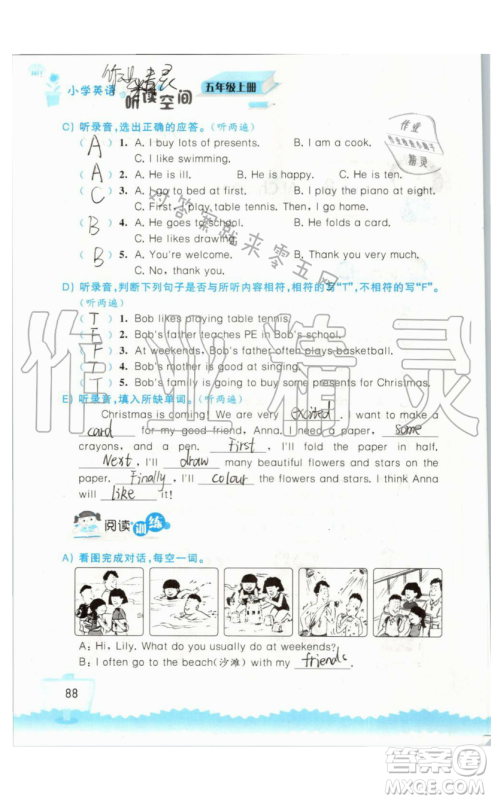 小学英语 听读空间 五年级上册
作业精灵
C) 听录音,选出正确的应答。(听两遍)
( A ) 1. A. I buy lots of presents. B. I have some cards.
C. I like swimming.
( A ) 2. A. He is ill. B. He is happy. C. He is ten.
( C ) 3. A. I go to bed at first. B. I play the piano at eight.
C. First, I play table tennis.
( B ) 4. A. He goes to school. B. He folds a card.
C. He likes drawing.
( B ) 5. A. You're welcome. B. Thank you very much.
C. No, thank you.
D) 听录音,判断下列句子是否与所听内容相符,相符的写"T",不相符的写"F"。
(听两遍)
( T ) 1. Bob likes playing table tennis.
( F ) 2. Bob's father teaches PE in Bob's school.
( F ) 3. At weekends, Bob's father often plays basketball.
( T ) 5. Bob's family is going to buy some presents for Christmas.
E) 听录音,填入所缺单词。(听两遍)
Christmas is coming! We are very excited. I want to make a
card for my good friend, Anna. I need a paper, some
crayons, and a pen. First, I'll fold the paper in half.
Next, I'll draw many beautiful flowers and stars on the
paper. Finally, I'll colour the flowers and stars. I think Anna
will like it!
阅读训练
A) 看图完成对话,每空一词。
A: Hi, Lily. What do you usually do at weekends?
B: I often go to the beach(沙滩) with my friends.
88
对答案就来零五网
作业精灵
作业
精灵
答案圈